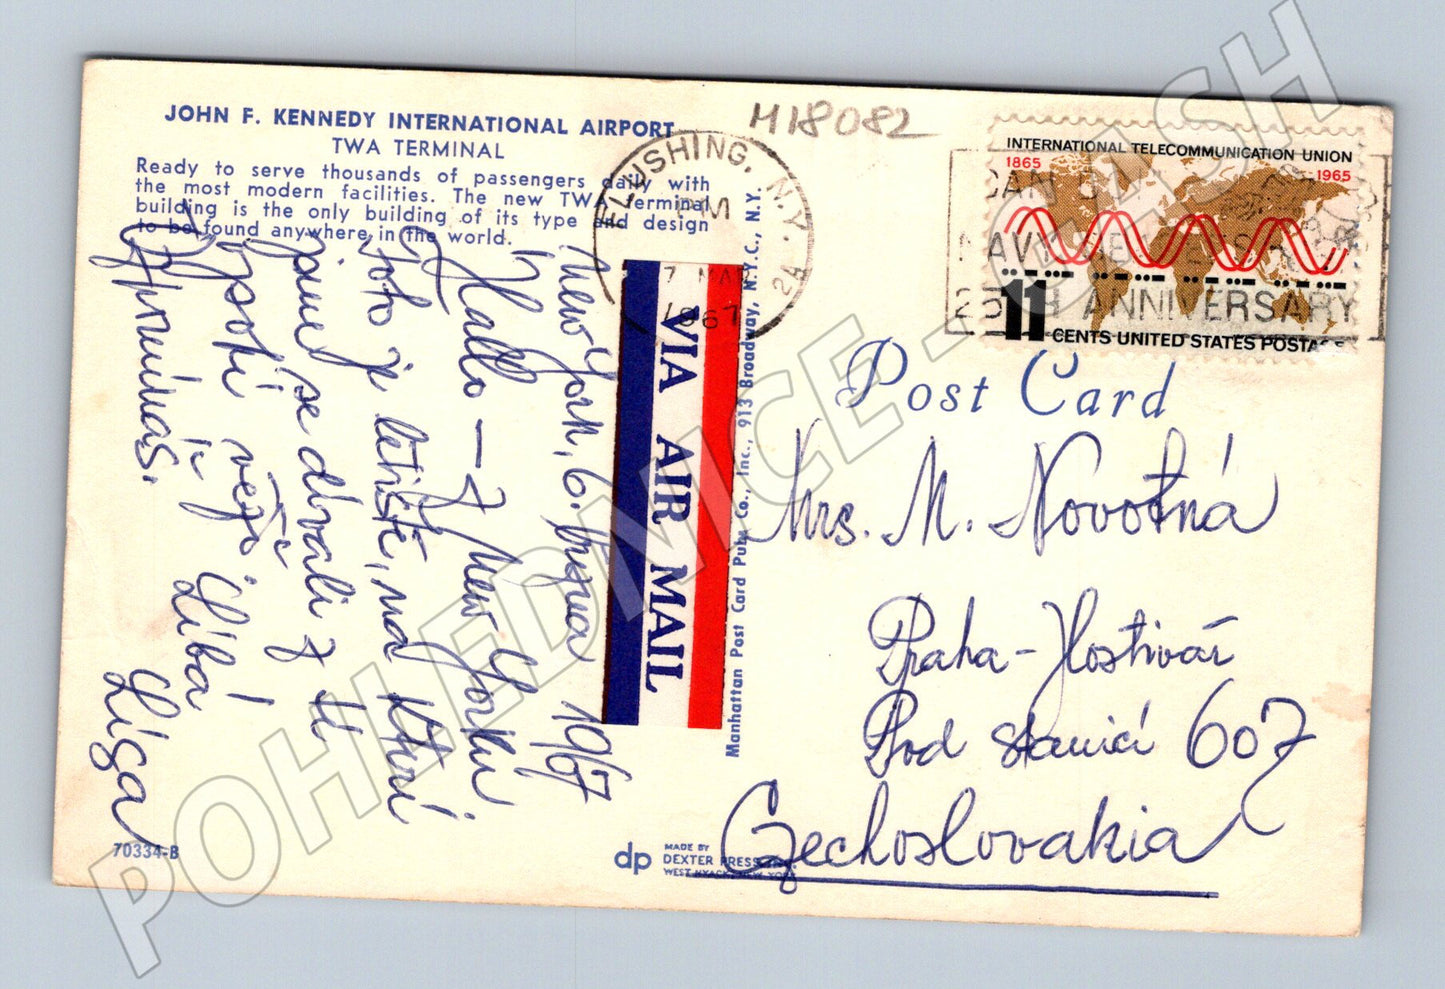 JOHN F. KENNEDY INTERNATIONAL AIRPORT
TWA TERMINAL
Ready to serve thousands of passengers daily with
the most modern facilities. The new TWA Terminal
building is the only building of its type and design
to be found anywhere in the world.
H18082
FLUSHING, N.Y.
PM
7 MAR
1967
24
INTERNATIONAL TELECOMMUNICATION UNION
1865
1965
11
CENTS UNITED STATES POSTAGE
25TH ANNIVERSARY
VIA AIR MAIL
Manhattan Post Card Pub. Co., Inc., 913 Broadway, N.Y.C., N.Y.
Post Card
Mrs. M. Novotná
Praha - Hostivář
Pod stanicí 607
Czechoslovakia
New York, 6. března 1967
Hallo - z New Yorku
Toto je letiště, nad kterým
jsme se dívali z
věže
líbá
Připomínáš.
Líza
70334-B
dp
MADE BY
DEXTER PRESS, INC.
WEST NYACK, NEW YORK
POHLEDNICE - CASH